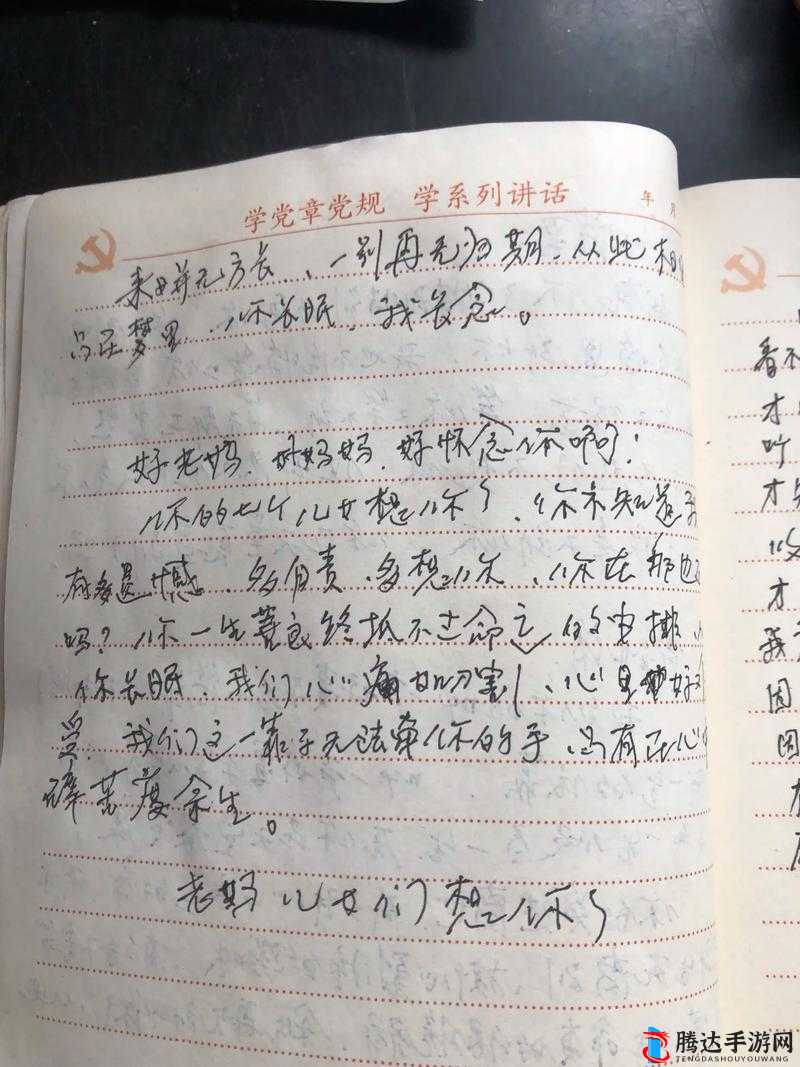 学党章党规 学系列讲话 年 月
来日并无方长、一别再无归期、从此相
只在梦里、你长眠、我长念。
好老妈、好妈妈、好怀念你啊！
你的七个儿女想你了、你亦知道
有多遗憾、多自责、多想你、你在那边
吗？你一生善良终抵不过命运的安排、
你长眠、我们心痛如刀割、心里好
受、我们这一辈子无法牵你的手、只有在心
苦度余生。
老妈儿女们想你了
看不
才
叶
才
收
才
我
因
因
腾达手游网
TENGDASHOUYOUWANG